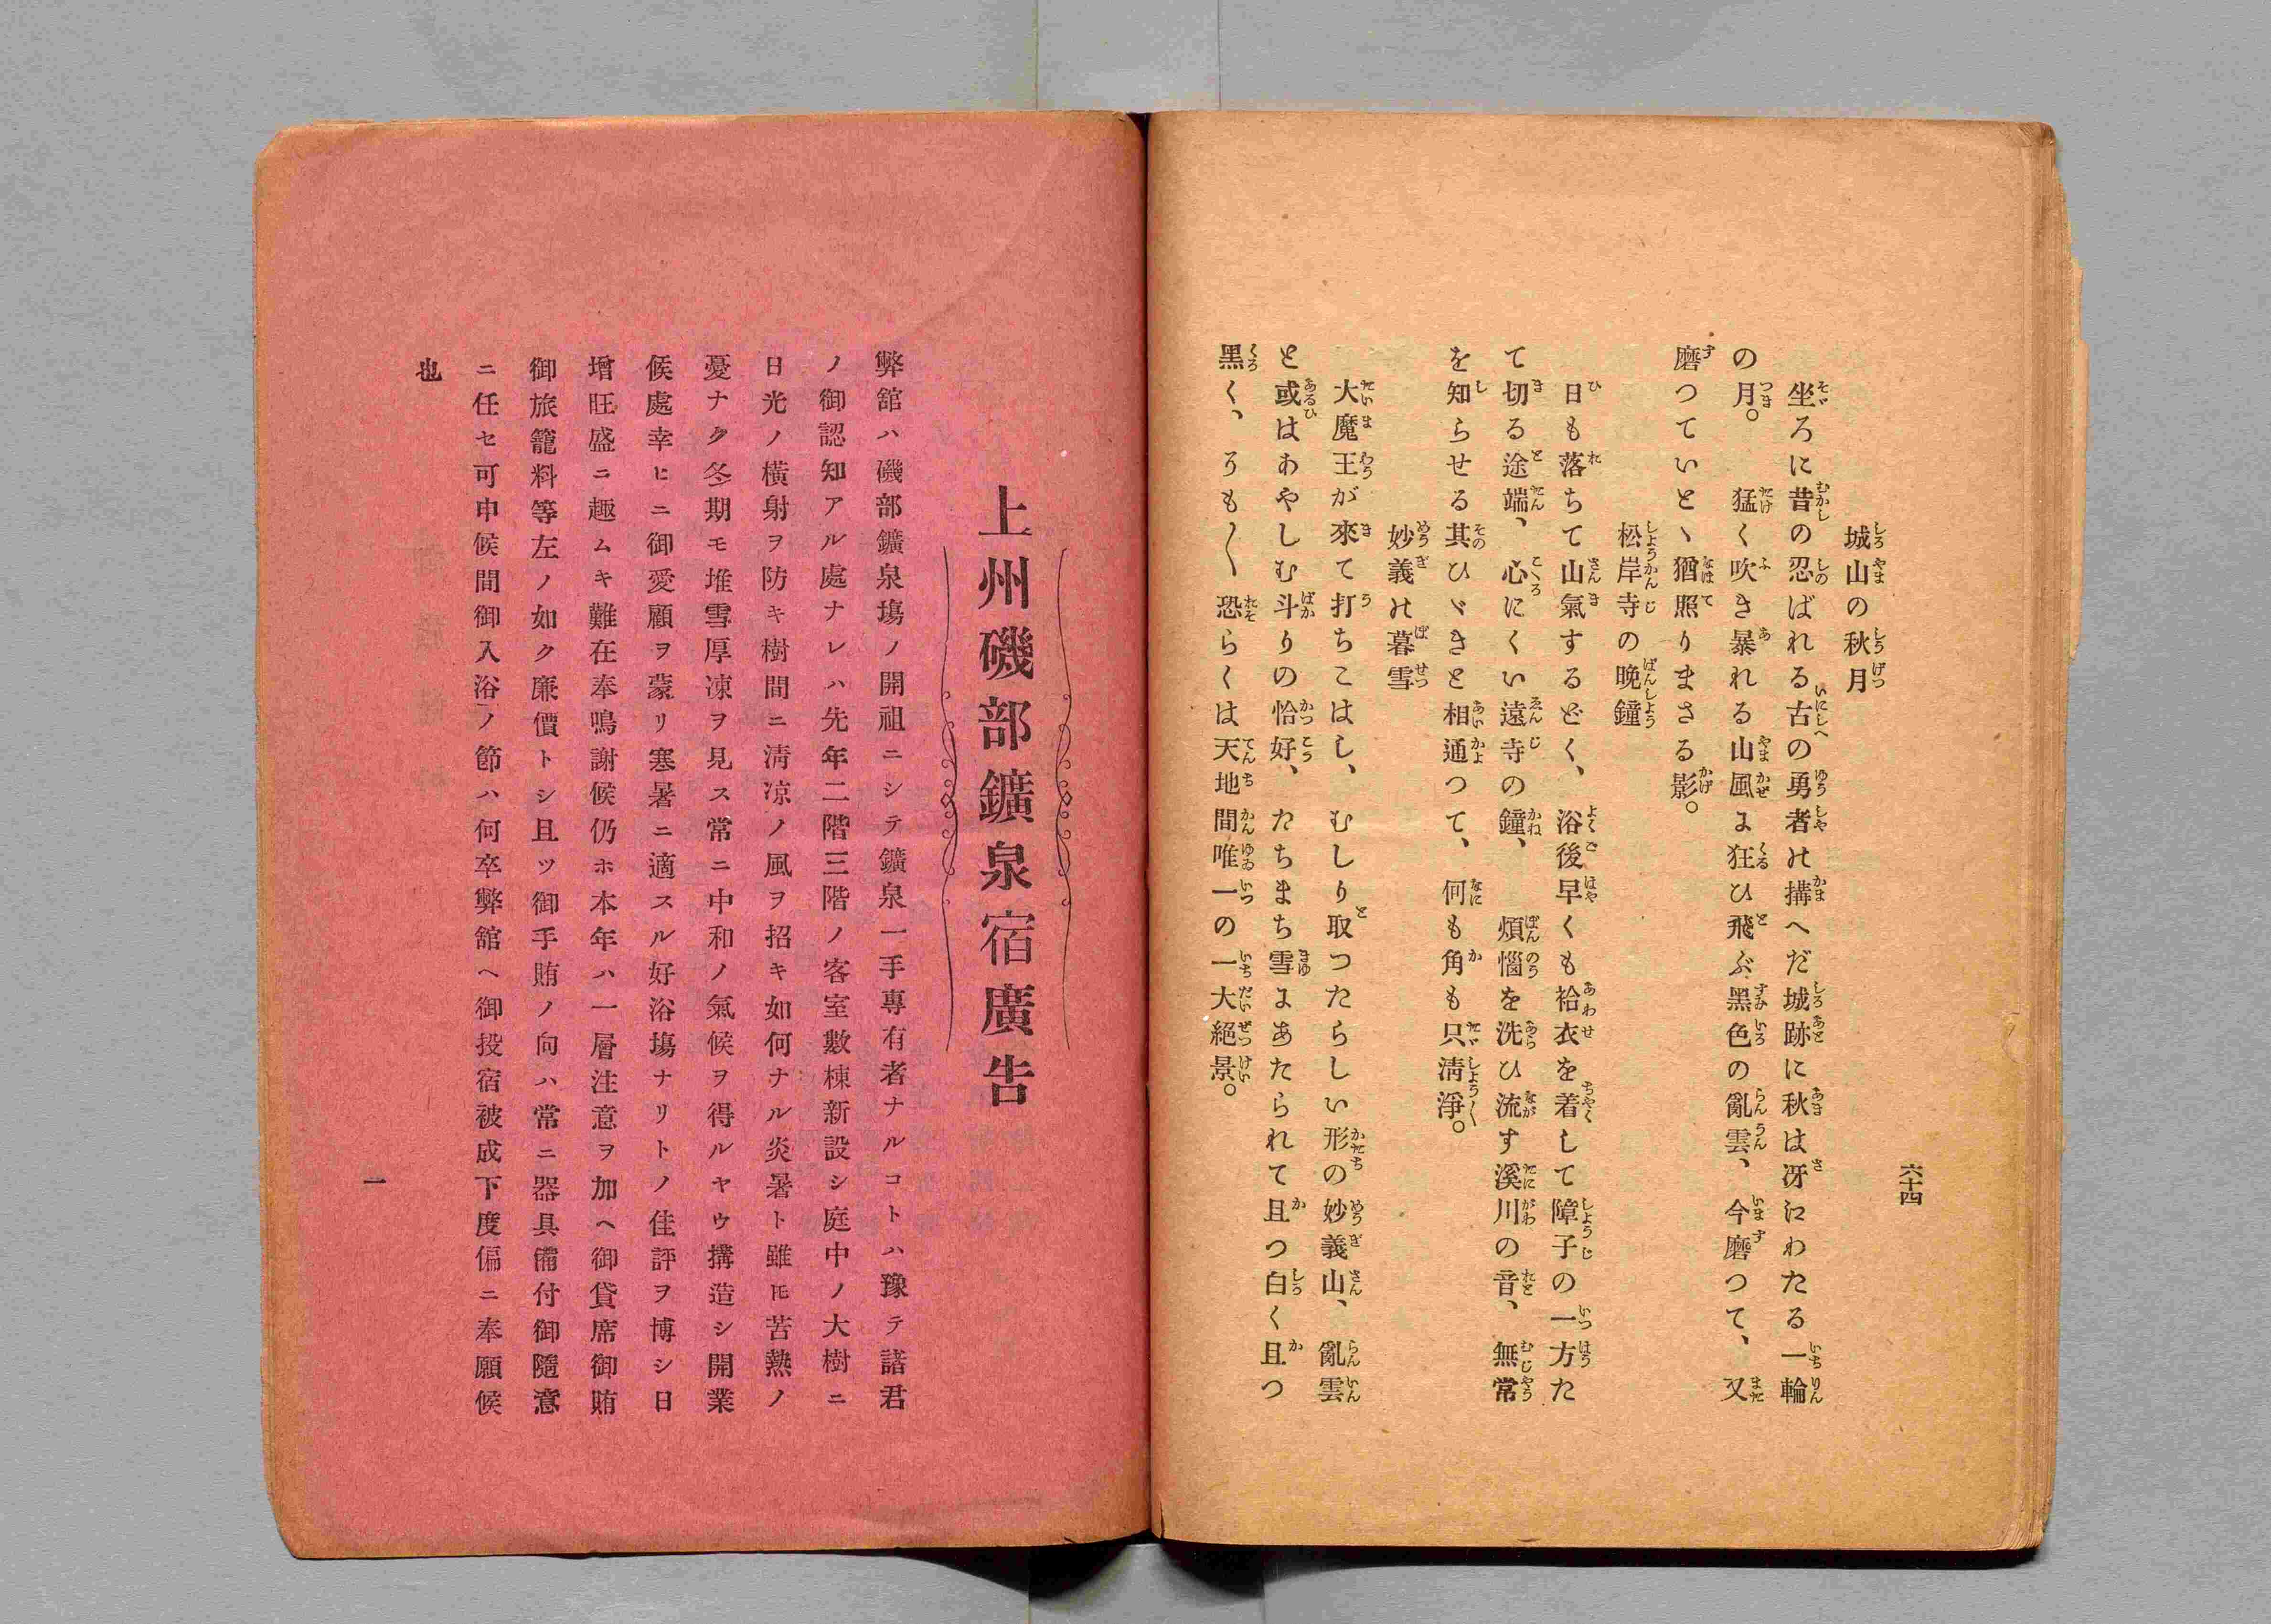 六十四
城山の秋月
坐ろに昔の忍ばれる古の勇者の搆へだ城跡に秋は冴江わたる一輪
の月。猛く吹き暴れる山風に狂ひ飛ぶ黑色の亂雲、今磨つて、又
磨つていとゝ猶照りまさる影。
松岸寺の晩鐘
日も落ちて山氣するどく、浴後早くも袷衣を着して障子の一方た
て切る途端、心にくい遠寺の鐘、煩惱を洗ひ流す溪川の音、無常
を知らせる其ひゞきと相通つて、何も角も只淸淨。
妙義の暮雪
大魔王が來て打ちこはし、むしり取つたらしい形の妙義山、亂雲
と或はあやしむ斗りの恰好、たちまち雪にあたられて且つ白く且つ
黑く、ろも〱恐らくは天地間唯一の一大絕景。
上州磯部鑛泉宿廣告
弊舘ハ磯部鑛泉塲ノ開祖ニシテ鑛泉一手專有者ナルコトハ豫テ諸君
ノ御認知アル處ナレハ先年二階三階ノ客室數棟新設シ庭中ノ大樹ニ
日光ノ橫射ヲ防キ樹間ニ淸凉ノ風ヲ招キ如何ナル炎暑ト雖モ苦熱ノ
憂ナク冬期モ堆雪厚凍ヲ見ス常ニ中和ノ氣候ヲ得ルヤウ搆造シ開業
候處幸ヒニ御愛顧ヲ蒙リ寒暑ニ適スル好浴塲ナリトノ佳評ヲ博シ日
增旺盛ニ趣ムキ難在奉鳴謝候仍ホ本年ハ一層注意ヲ加ヘ御貸席御賄
御旅籠料等左ノ如ク廉價トシ且ツ御手賄ノ向ハ常ニ器具備付御隨意
ニ任セ可申候間御入浴ノ節ハ何卒弊舘ヘ御投宿被成下度偏ニ奉願候
也
一